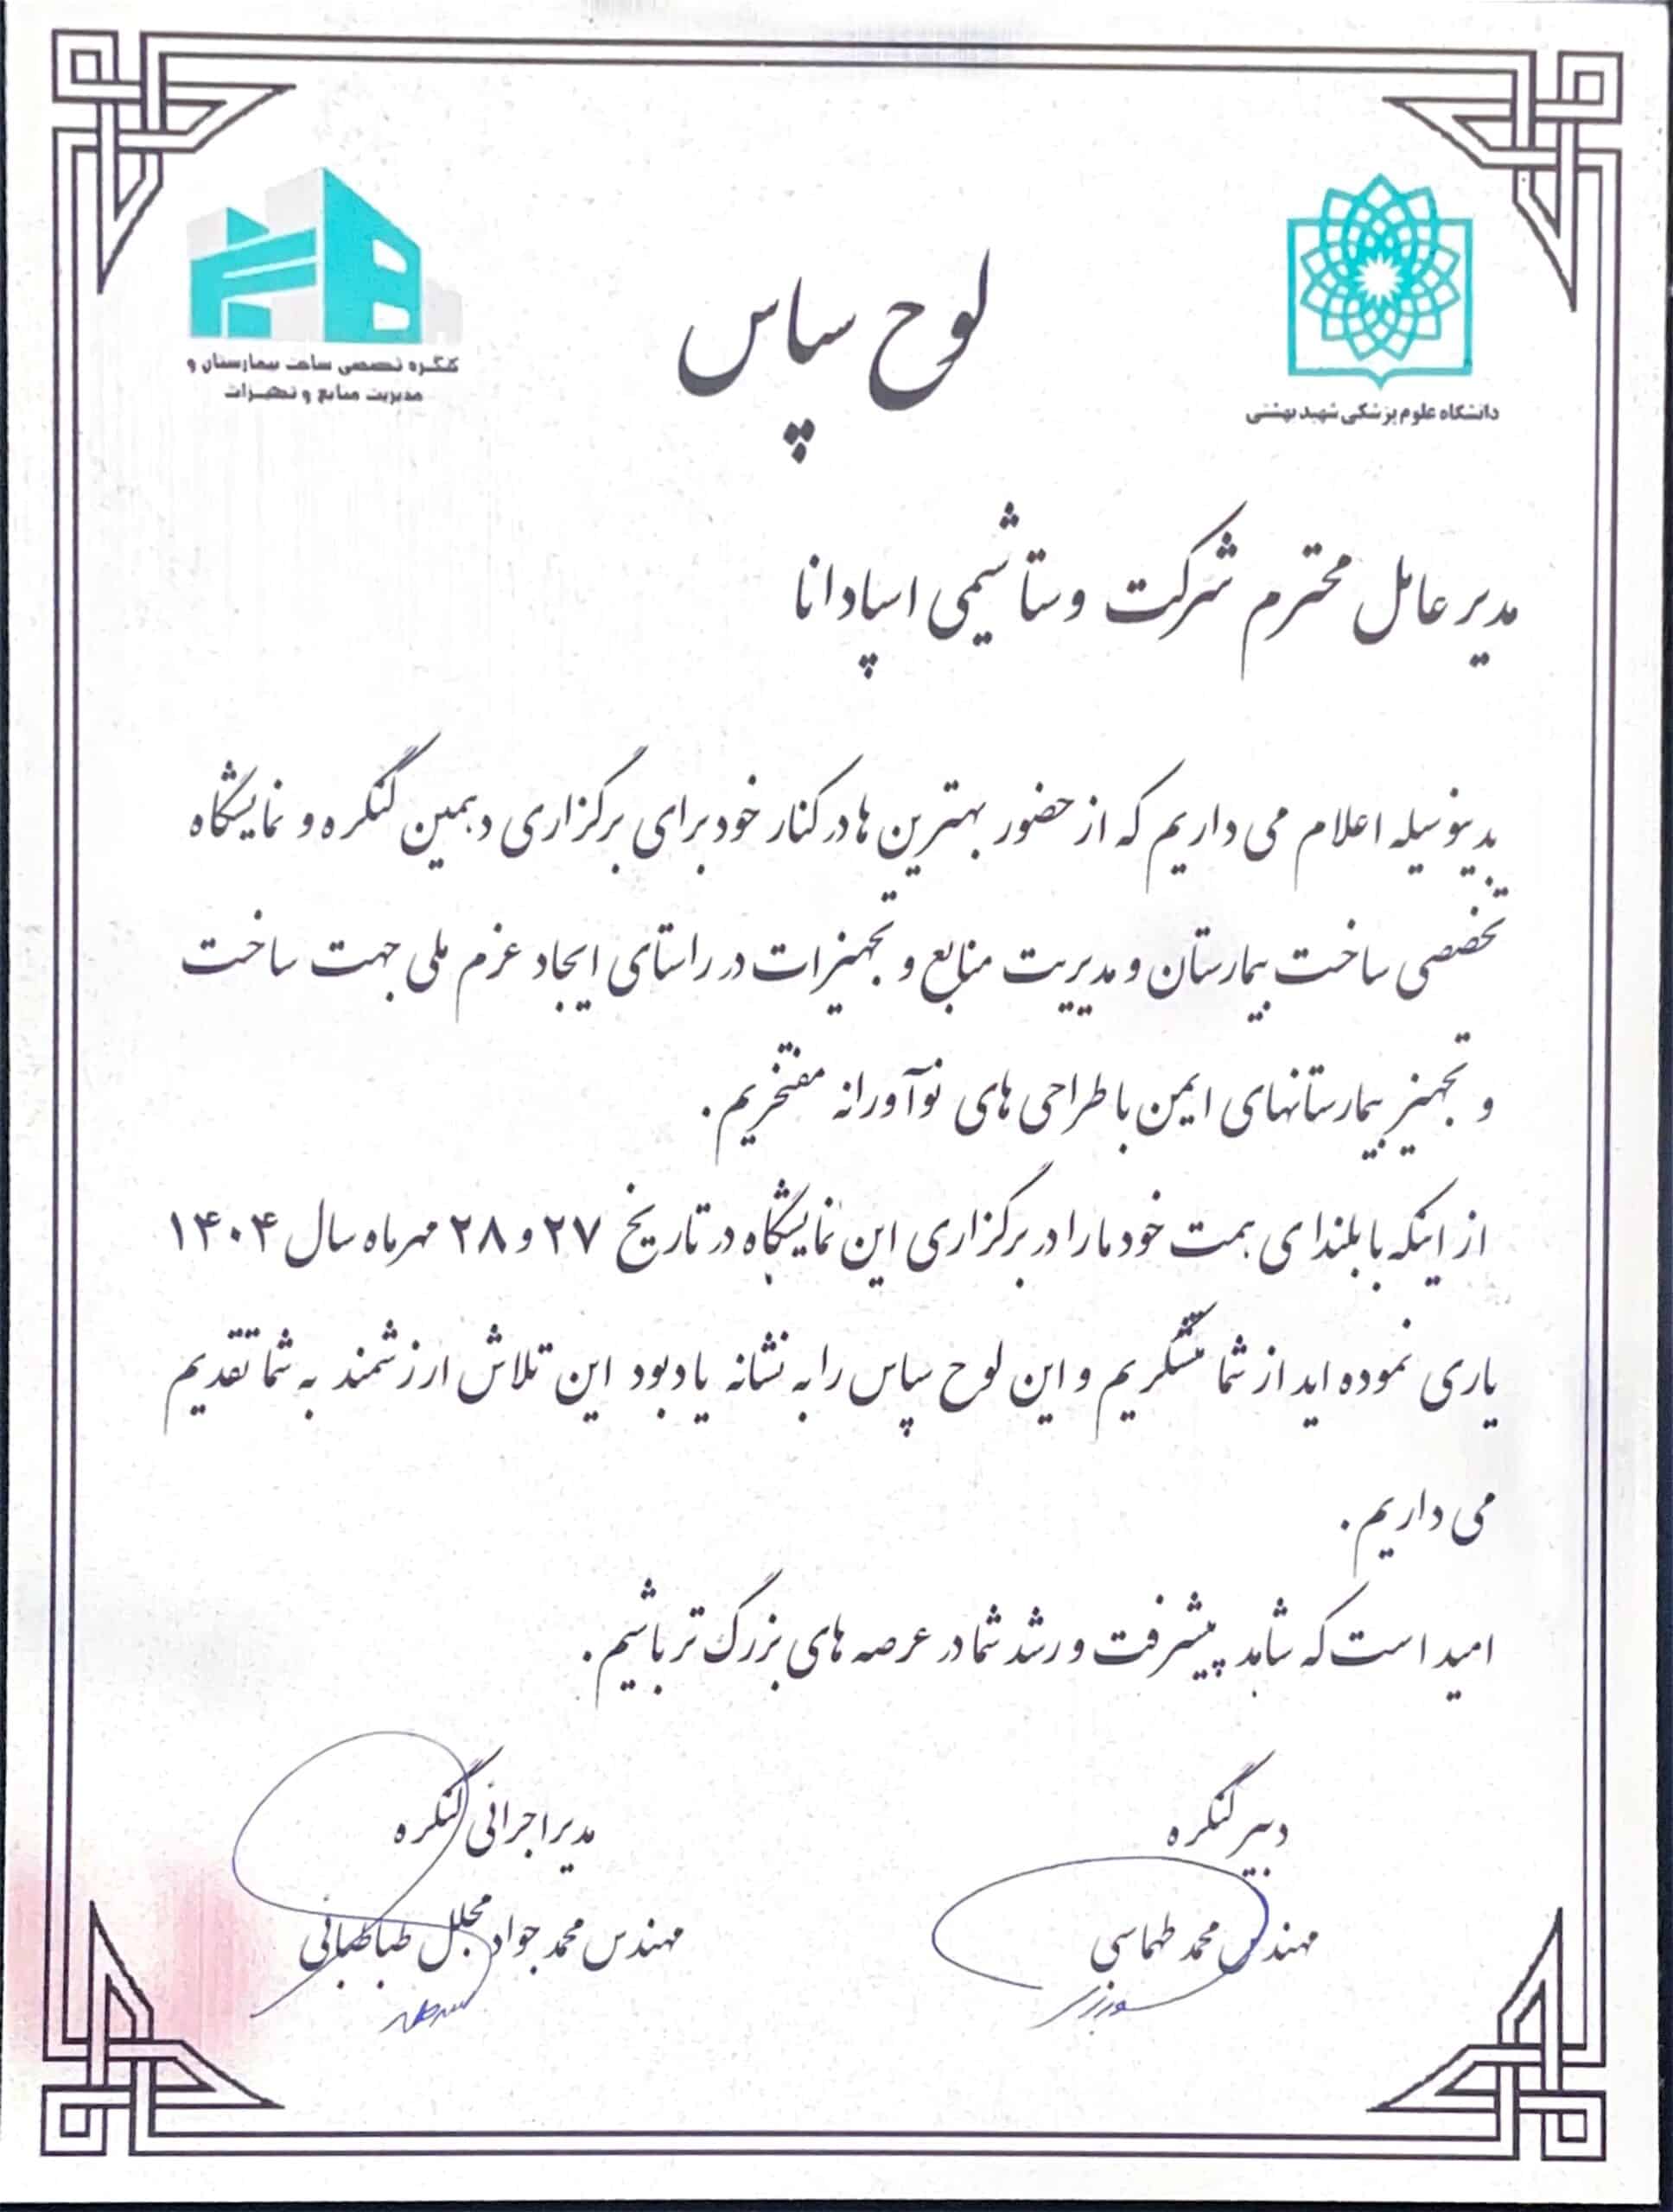 دانشگاه علوم پزشکی شهید بهشتی
کنگره تخصصی ساخت بیمارستان و
مدیریت منابع و تجهیزات
لوح سپاس
مدیر عامل محترم شرکت وستا شیمی اسپادانا
بدینوسیله اعلام می داریم که از حضور بهترین ها در کنار خود برای برگزاری دهمین کنگره و نمایشگاه
تخصصی ساخت بیمارستان و مدیریت منابع و تجهیزات در راستای ایجاد عزم ملی جهت ساخت
و تجهیز بیمارستانهای ایمن با طراحی های نوآورانه مفتخریم.
از اینکه با بلندای همت خود ما را در برگزاری این نمایشگاه در تاریخ ۲۷ و ۲۸ مهرماه سال ۱۴۰۴
یاری نموده اید از شما متشکریم و این لوح سپاس را به نشانه یادبود این تلاش ارزشمند به شما تقدیم
می داریم.
امید است که شاهد پیشرفت و رشد شما در عرصه های بزرگ تر باشیم.
دبیر کنگره
مهندس محمد طهماسی
مدیر اجرائی کنگره
مهندس محمد جواد مجلل طباطبائی